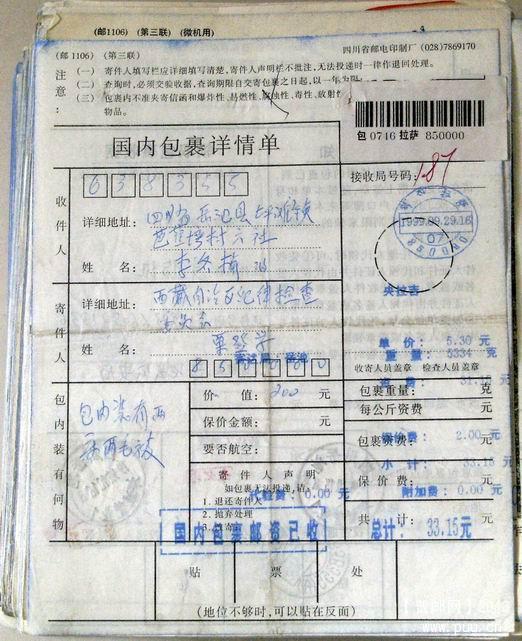 (邮1106) (第三联) (微机用)
(邮 1106) (第三联)
四川省邮电印制厂 (028)7869170
注意:
(一) 寄件人填写栏应详细填写清楚,寄件人声明栏不批注,无法投递时一律作退回处理。
(二) 查询时,必须交验收据,查询期限自交寄包裹之日起,以一年为限
(三) 包裹内不准夹寄信函和爆炸性、易燃性、腐蚀性、毒性、放射性
物品。
包 0746 拉萨 850000
国内包裹详情单
接收局号码: 187
收件人
638355
详细地址: 四川省岳池县
村六社
姓 名: 李
1999.09.29.16
07
夹拉吉
寄件人
详细地址: 西藏自治区纪律检查
委员会
姓 名:
850000
单价: 5.30 元
重量: 5334 克
收寄人员盖章 检查人员盖章
包内装有何物
包内装有两
床两毛被
价 值: 200 元
保价金额: 元
要否航空:
包裹重量: 克
每公斤资费 元
包裹资费: 元
2.00 元
小计: 33.15 元
保价费: 元
附加费: 0.00 元
共 计: 元
总计: 33.15元
寄件人声明
如包裹无法投递,请:
1. 退还寄件人
2. 抛弃处理
0.00 元
国内包裹邮资已收
贴 票 处
(地位不够时,可以贴在反面)